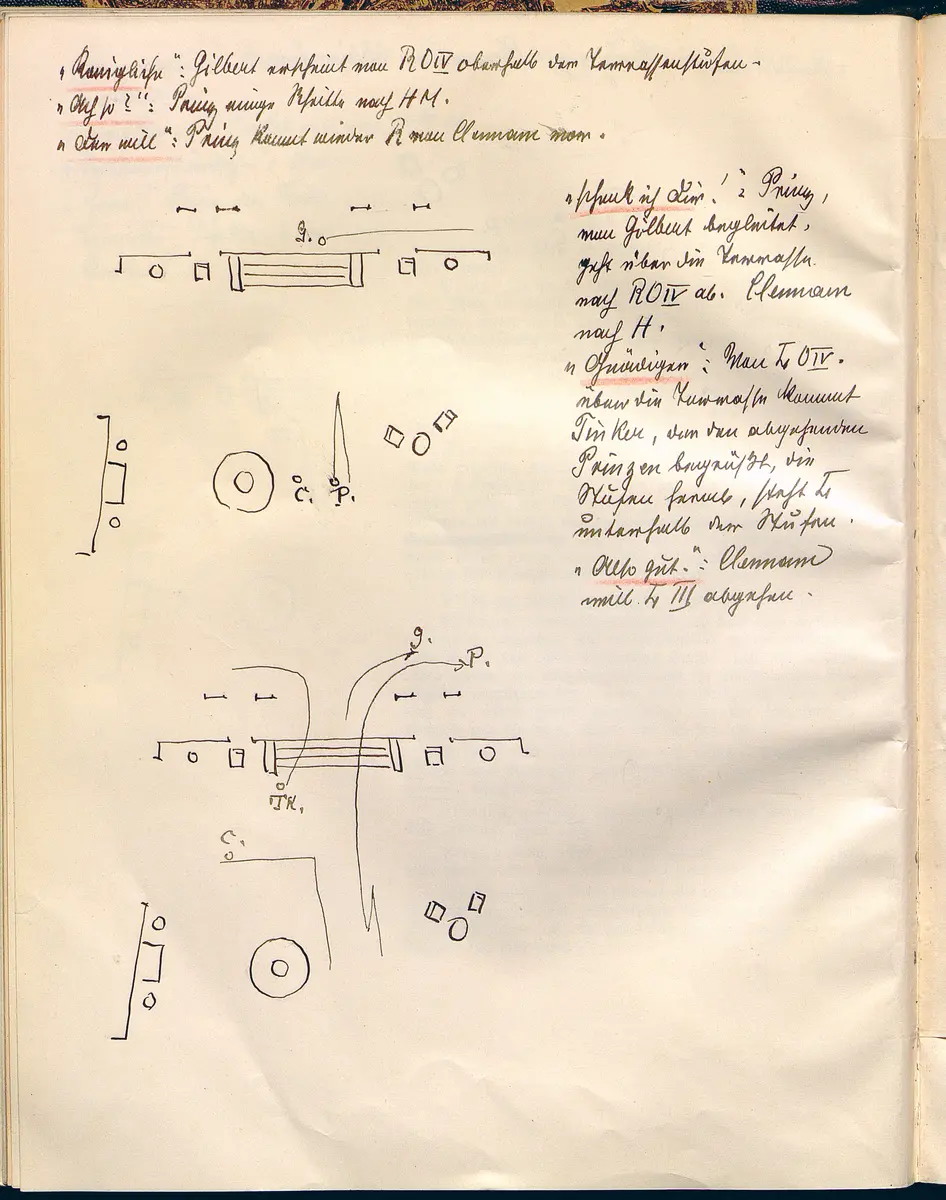 „Königliche“: Gilbert erscheint von R O IV oberhalb der Terrassenstufen.
„Ach so?“: Prinz einige Schritte nach H M.
„Der will“: Prinz kommt wieder R von Clennam vor.
„schenk ich Dir!“: Prinz,
von Gilbert begleitet,
geht über die Terrasse
nach R O IV ab. Clennam
nach H.
„Gnädigen“: Von L O IV.
über die Terrasse kommt
Tinker, der den abgehenden
Prinzen begrüßt, die
Stufen herab, steht L
unterhalb der Stufen.
„Also gut.“: Clennam
will L III abgehen.
G.
C. P.
G.
P.
TK.
C.